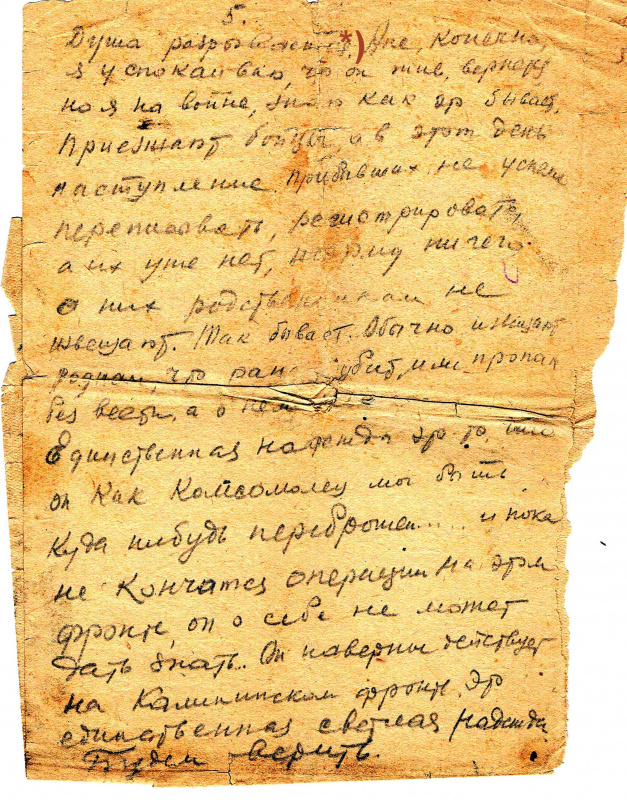 5.
Душа разрывается *) Ане, конечно,
я успокаиваю, что он жив, вернется
но я на войне, знаю как это бывает.
Приезжают бойцы, а в этот день
наступление. Прибывших не успели
переписать, регистрировать,
а их уже нет, поэтому ничего
о них родственникам не
извещают. Так бывает. Обычно извещают
родным, что ранен, убит, или пропал
без вести, а о нем
Единственная надежда это то, что
он как комсомолец мог быть
куда нибудь переброшен.... и пока
не кончатся операции на этом
фронте, он о себе не может
дать знать.. Он наверное действует
на Калининском фронте. Это
единственная светлая надежда
Будем верить.